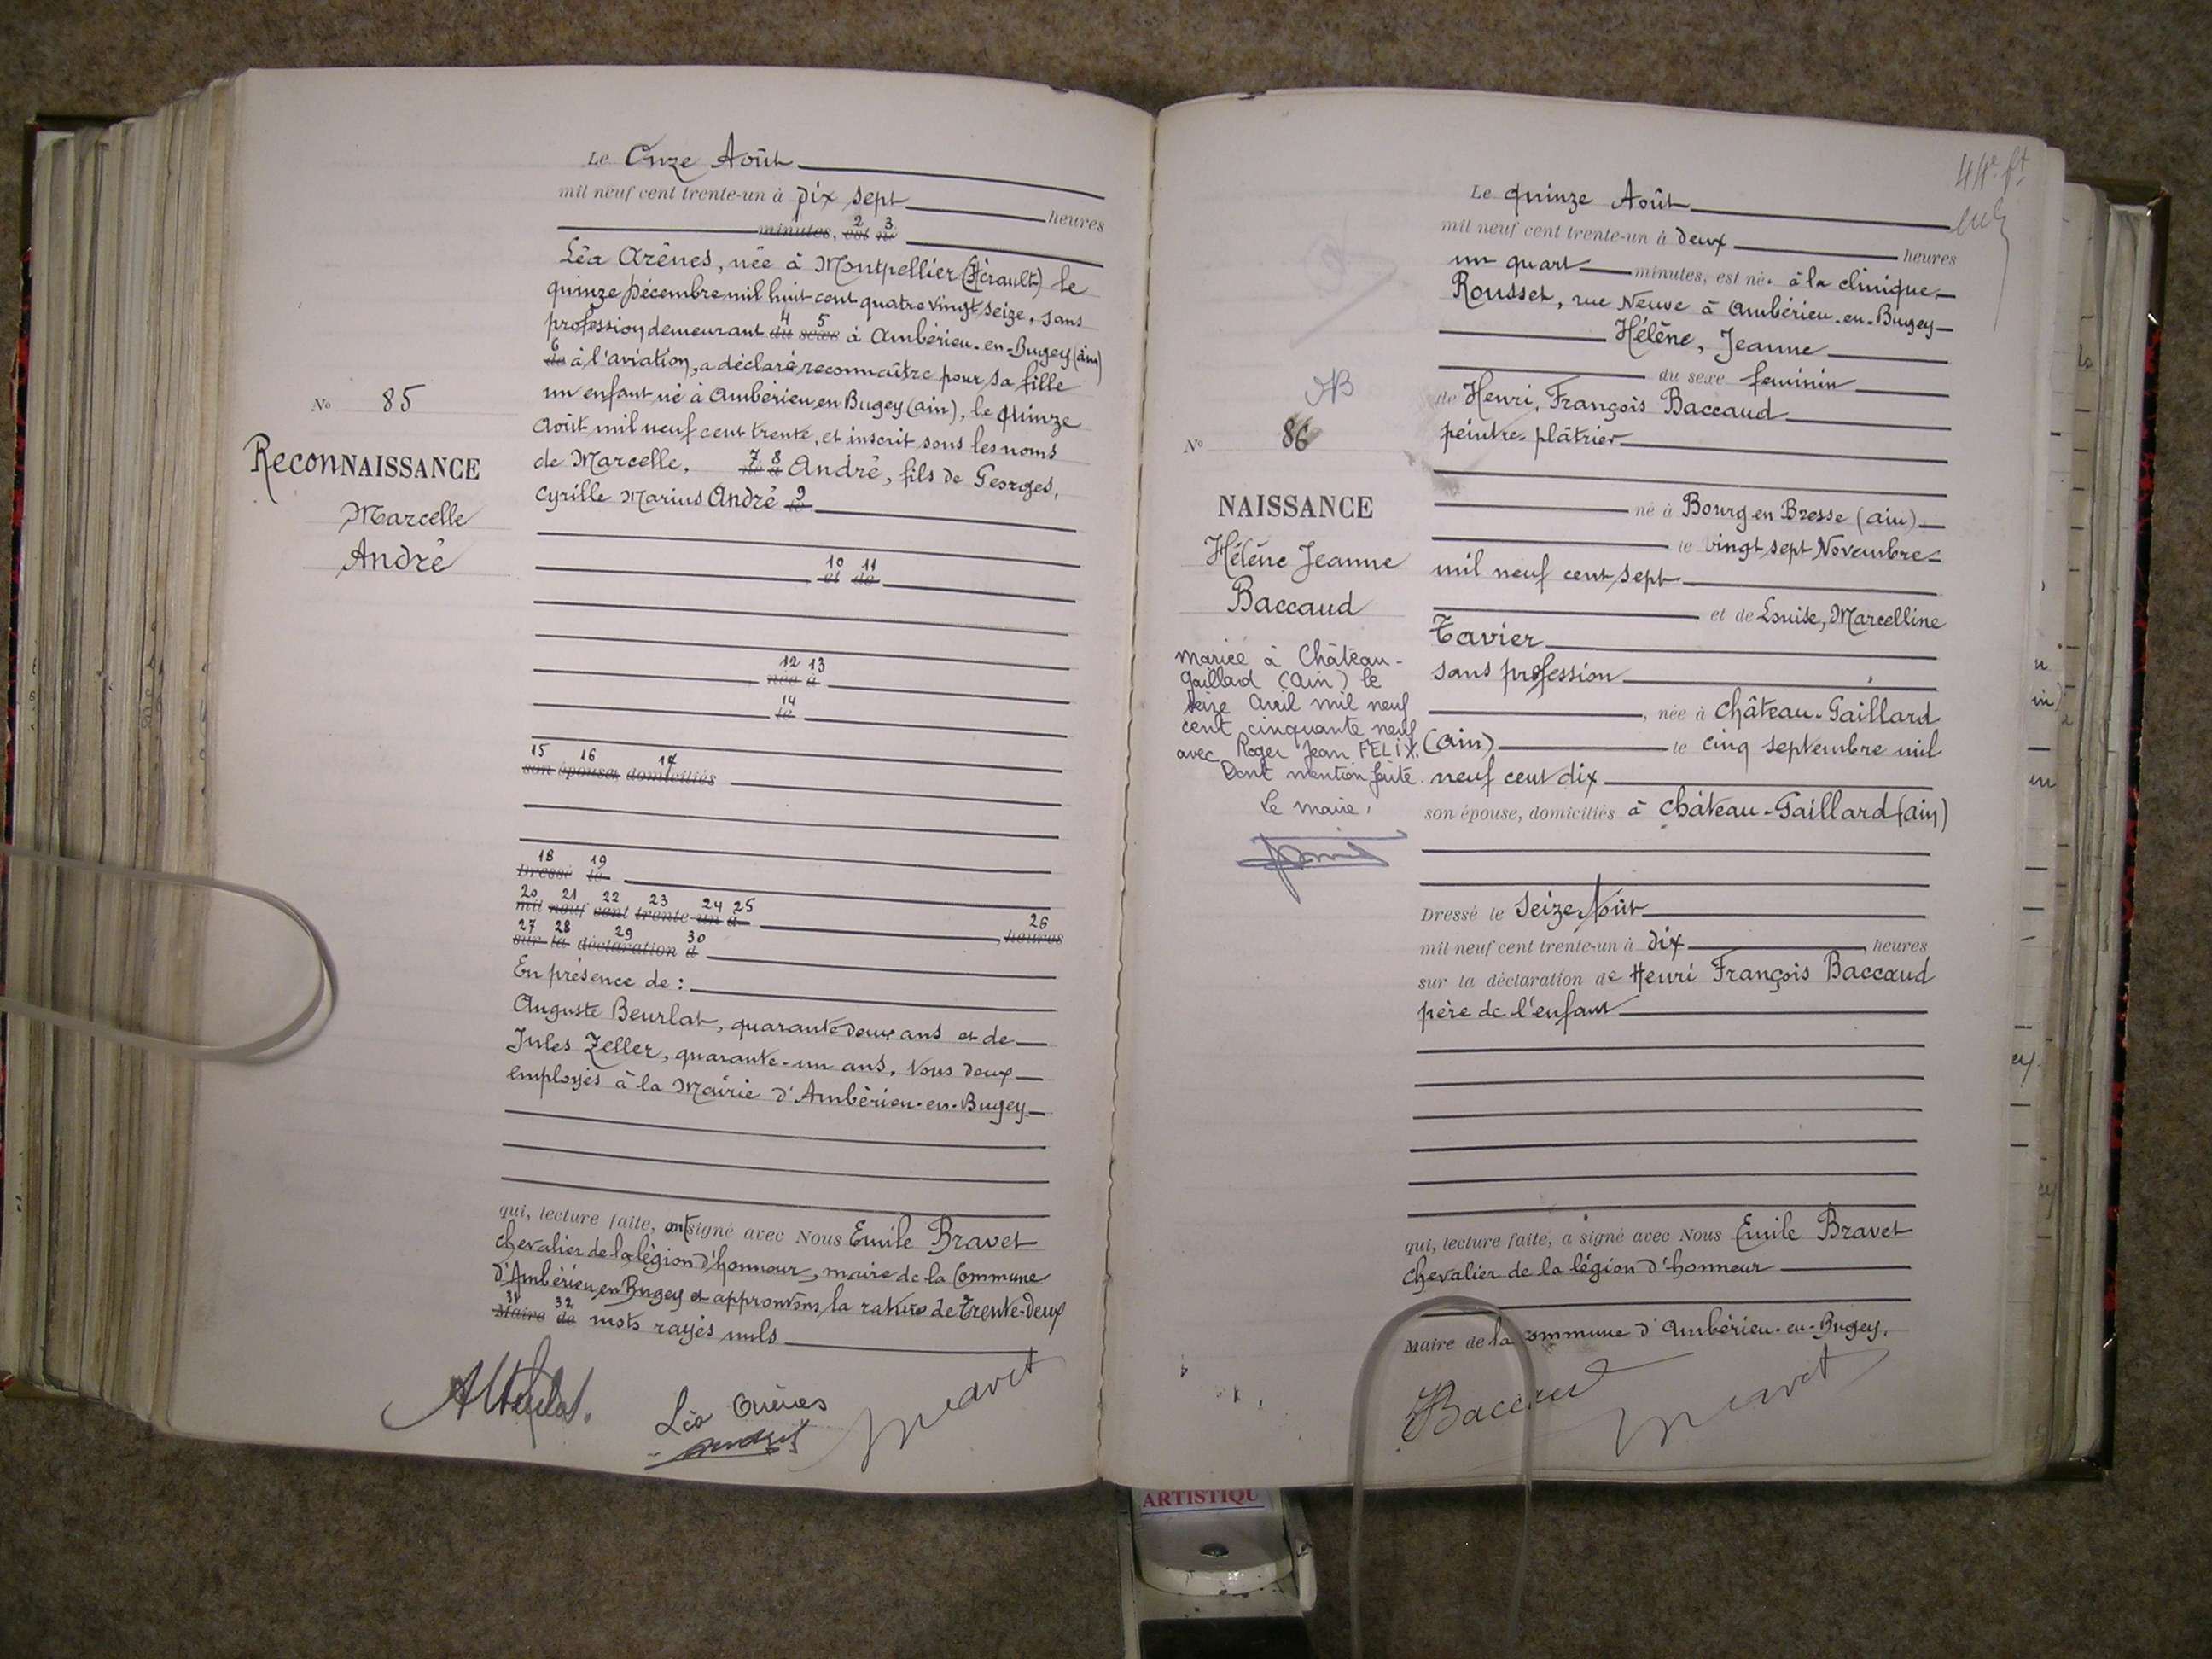 Le Onze Août
mil neuf cent trente-un à dix sept heures
minutes, est né
2 3
Léa Arènes, née à Montpellier (Hérault) le
quinze Décembre mil huit cent quatre vingt seize, sans
4 5
profession demeurant du sexe à Ambérieu-en-Bugey (ain)
6
de à l'aviation, a déclaré reconnaître pour sa fille
un enfant né à Ambérieu en Bugey (ain), le quinze
Août mil neuf cent trente, et inscrit sous les noms
de Marcelle, 7 8 André, fils de Georges,
Cyrille Marius André 9 le
N° 85
ReconNAISSANCE
Marcelle
André
10 11
et de
12 13
née à
14
le
15 16 17
son épouse, domiciliés
18 19
Dressé le
20 21 22 23 24 25 26
mil neuf cent trente-un à heures
27 28 29 30
sur la déclaration d
En présence de :
Auguste Beurlat, quarante deux ans et de
Jules Zeller, quarante-un ans, tous deux
employés à la Mairie d'Ambérieu-en-Bugey
qui, lecture faite, ont signé avec Nous Emile Bravet
chevalier de la légion d'honneur, maire de la Commune
d'Ambérieu en Bugey et approuvons la rature de Trente-Deux
31 32
Maire de mots rayés nuls
Léa Arènes
44e ft
Le quinze Août
mil neuf cent trente-un à deux heures
un quart minutes, est né. à la clinique
Rousset, rue Neuve à Ambérieu-en-Bugey
Hélène, Jeanne
du sexe feminin
de Henri, François Baccaud
peintre-plâtrier
né à Bourg en Bresse (ain)
le vingt sept Novembre
mil neuf cent sept
et de Louise, Marcelline
Tavier
sans profession
, née à Château-Gaillard
(ain) le cinq septembre mil
neuf cent dix
son épouse, domiciliés à Château-Gaillard (ain)
Dressé le Seize Août
mil neuf cent trente-un à dix heures
sur la déclaration de Henri François Baccaud
père de l'enfant
qui, lecture faite, a signé avec Nous Emile Bravet
chevalier de la légion d'honneur
Maire de la commune d'Ambérieu-en-Bugey.
Baccaud
N° 86
NAISSANCE
Hélène Jeanne
Baccaud
mariée à Château-
Gaillard (Ain) le
seize Avril mil neuf
cent cinquante neuf
avec Roger Jean FELIX.
Dont mention faite.
Le maire,
ARTISTIQU